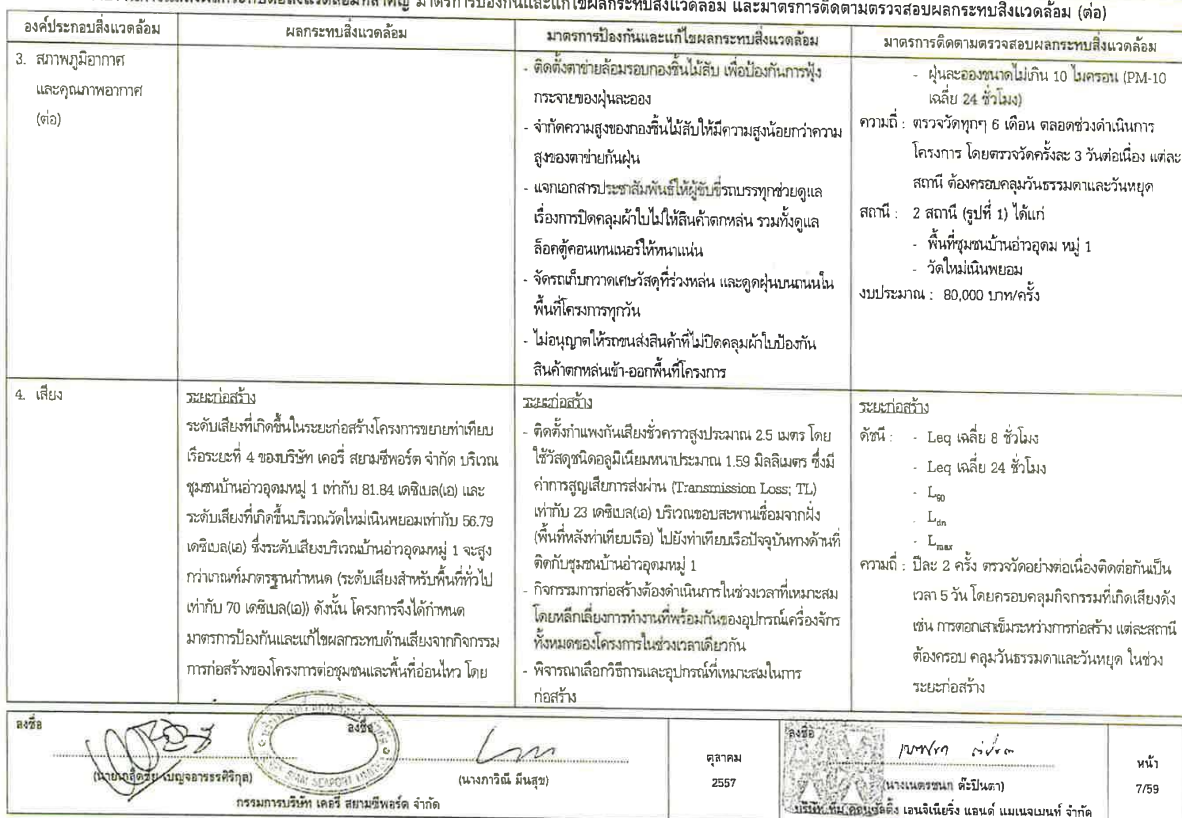 ผลกระทบต่อสิ่งแวดล้อมที่สำคัญ มาตรการป้องกันและแก้ไขผลกระทบสิ่งแวดล้อม และมาตรการติดตามตรวจสอบผลกระทบสิ่งแวดล้อม (ต่อ)
องค์ประกอบสิ่งแวดล้อม
ผลกระทบสิ่งแวดล้อม
มาตรการป้องกันและแก้ไขผลกระทบสิ่งแวดล้อม
มาตรการติดตามตรวจสอบผลกระทบสิ่งแวดล้อม
3. สภาพภูมิอากาศ
และคุณภาพอากาศ
(ต่อ)
- ติดตั้งตาข่ายล้อมรอบกองชิ้นไม้สับ เพื่อป้องกันการฟุ้ง
กระจายของฝุ่นละออง
- จำกัดความสูงของกองชิ้นไม้สับให้มีความสูงน้อยกว่าความ
สูงของตาข่ายกันฝุ่น
- แจกเอกสารประชาสัมพันธ์ให้ผู้ขับขี่รถบรรทุกช่วยดูแล
เรื่องการปิดคลุมผ้าใบไม่ให้สินค้าตกหล่น รวมทั้งดูแล
ล็อคตู้คอนเทนเนอร์ให้หนาแน่น
- จัดรถเก็บกวาดเศษวัสดุที่ร่วงหล่น และดูดฝุ่นบนถนนใน
พื้นที่โครงการทุกวัน
- ไม่อนุญาตให้รถขนส่งสินค้าที่ไม่ปิดคลุมผ้าใบป้องกัน
สินค้าตกหล่นเข้า-ออกพื้นที่โครงการ
- ฝุ่นละอองขนาดไม่เกิน 10 ไมครอน (PM-10
เฉลี่ย 24 ชั่วโมง)
ความถี่ : ตรวจวัดทุกๆ 6 เดือน ตลอดช่วงดำเนินการ
โครงการ โดยตรวจวัดครั้งละ 3 วันต่อเนื่อง แต่ละ
สถานี ต้องครอบคลุมวันธรรมดาและวันหยุด
สถานี : 2 สถานี (รูปที่ 1) ได้แก่
- พื้นที่ชุมชนบ้านอ่าวอุดม หมู่ 1
- วัดใหม่เนินพยอม
งบประมาณ : 80,000 บาท/ครั้ง
4. เสียง
ระยะก่อสร้าง
ระดับเสียงที่เกิดขึ้นในระยะก่อสร้างโครงการขยายท่าเทียบ
เรือระยะที่ 4 ของบริษัท เคอรี่ สยามซีพอร์ต จำกัด บริเวณ
ชุมชนบ้านอ่าวอุดมหมู่ 1 เท่ากับ 81.84 เดซิเบล(เอ) และ
ระดับเสียงที่เกิดขึ้นบริเวณวัดใหม่เนินพยอมเท่ากับ 56.79
เดซิเบล(เอ) ซึ่งระดับเสียงบริเวณบ้านอ่าวอุดมหมู่ 1 จะสูง
กว่าเกณฑ์มาตรฐานกำหนด (ระดับเสียงสำหรับพื้นที่ทั่วไป
เท่ากับ 70 เดซิเบล(เอ)) ดังนั้น โครงการจึงได้กำหนด
มาตรการป้องกันและแก้ไขผลกระทบด้านเสียงจากกิจกรรม
การก่อสร้างของโครงการต่อชุมชนและพื้นที่อ่อนไหว โดย
ระยะก่อสร้าง
- ติดตั้งกำแพงกันเสียงชั่วคราวสูงประมาณ 2.5 เมตร โดย
ใช้วัสดุชนิดอลูมิเนียมหนาประมาณ 1.59 มิลลิเมตร ซึ่งมี
ค่าการสูญเสียการส่งผ่าน (Transmission Loss; TL)
เท่ากับ 23 เดซิเบล(เอ) บริเวณขอบสะพานเชื่อมจากฝั่ง
(พื้นที่หลังท่าเทียบเรือ) ไปยังท่าเทียบเรือปัจจุบันทางด้านที่
ติดกับชุมชนบ้านอ่าวอุดมหมู่ 1
- กิจกรรมการก่อสร้างต้องดำเนินการในช่วงเวลาที่เหมาะสม
โดยหลีกเลี่ยงการทำงานที่พร้อมกันของอุปกรณ์เครื่องจักร
ทั้งหมดของโครงการในช่วงเวลาเดียวกัน
- พิจารณาเลือกวิธีการและอุปกรณ์ที่เหมาะสมในการ
ก่อสร้าง
ระยะก่อสร้าง
ดัชนี : - Leq เฉลี่ย 8 ชั่วโมง
- Leq เฉลี่ย 24 ชั่วโมง
- L90
- Ldn
- Lmax
ความถี่ : ปีละ 2 ครั้ง ตรวจวัดอย่างต่อเนื่องติดต่อกันเป็น
เวลา 5 วัน โดยครอบคลุมกิจกรรมที่เกิดเสียงดัง
เช่น การตอกเสาเข็มระหว่างการก่อสร้าง แต่ละสถานี
ต้องครอบ คลุมวันธรรมดาและวันหยุด ในช่วง
ระยะก่อสร้าง
ลงชื่อ
ลงชื่อ
(นางภาวิณี มีนสุข)
กรรมการบริษัท เคอรี่ สยามซีพอร์ต จำกัด
ตุลาคม
2557
ลงชื่อ
(นางเนตรชนก ต๊ะปินตา)
เอนจิเนียริ่ง แอนด์ แมเนจเมนท์ จำกัด
หน้า
7/59